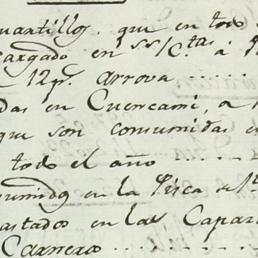 uartillos que en todo
cargado en S/Cta á
12 p.s arrova
das en Cuencamé, a
que son consumidas en
todo el año
sumido en la Pisca
astados en las Capar
Carnero